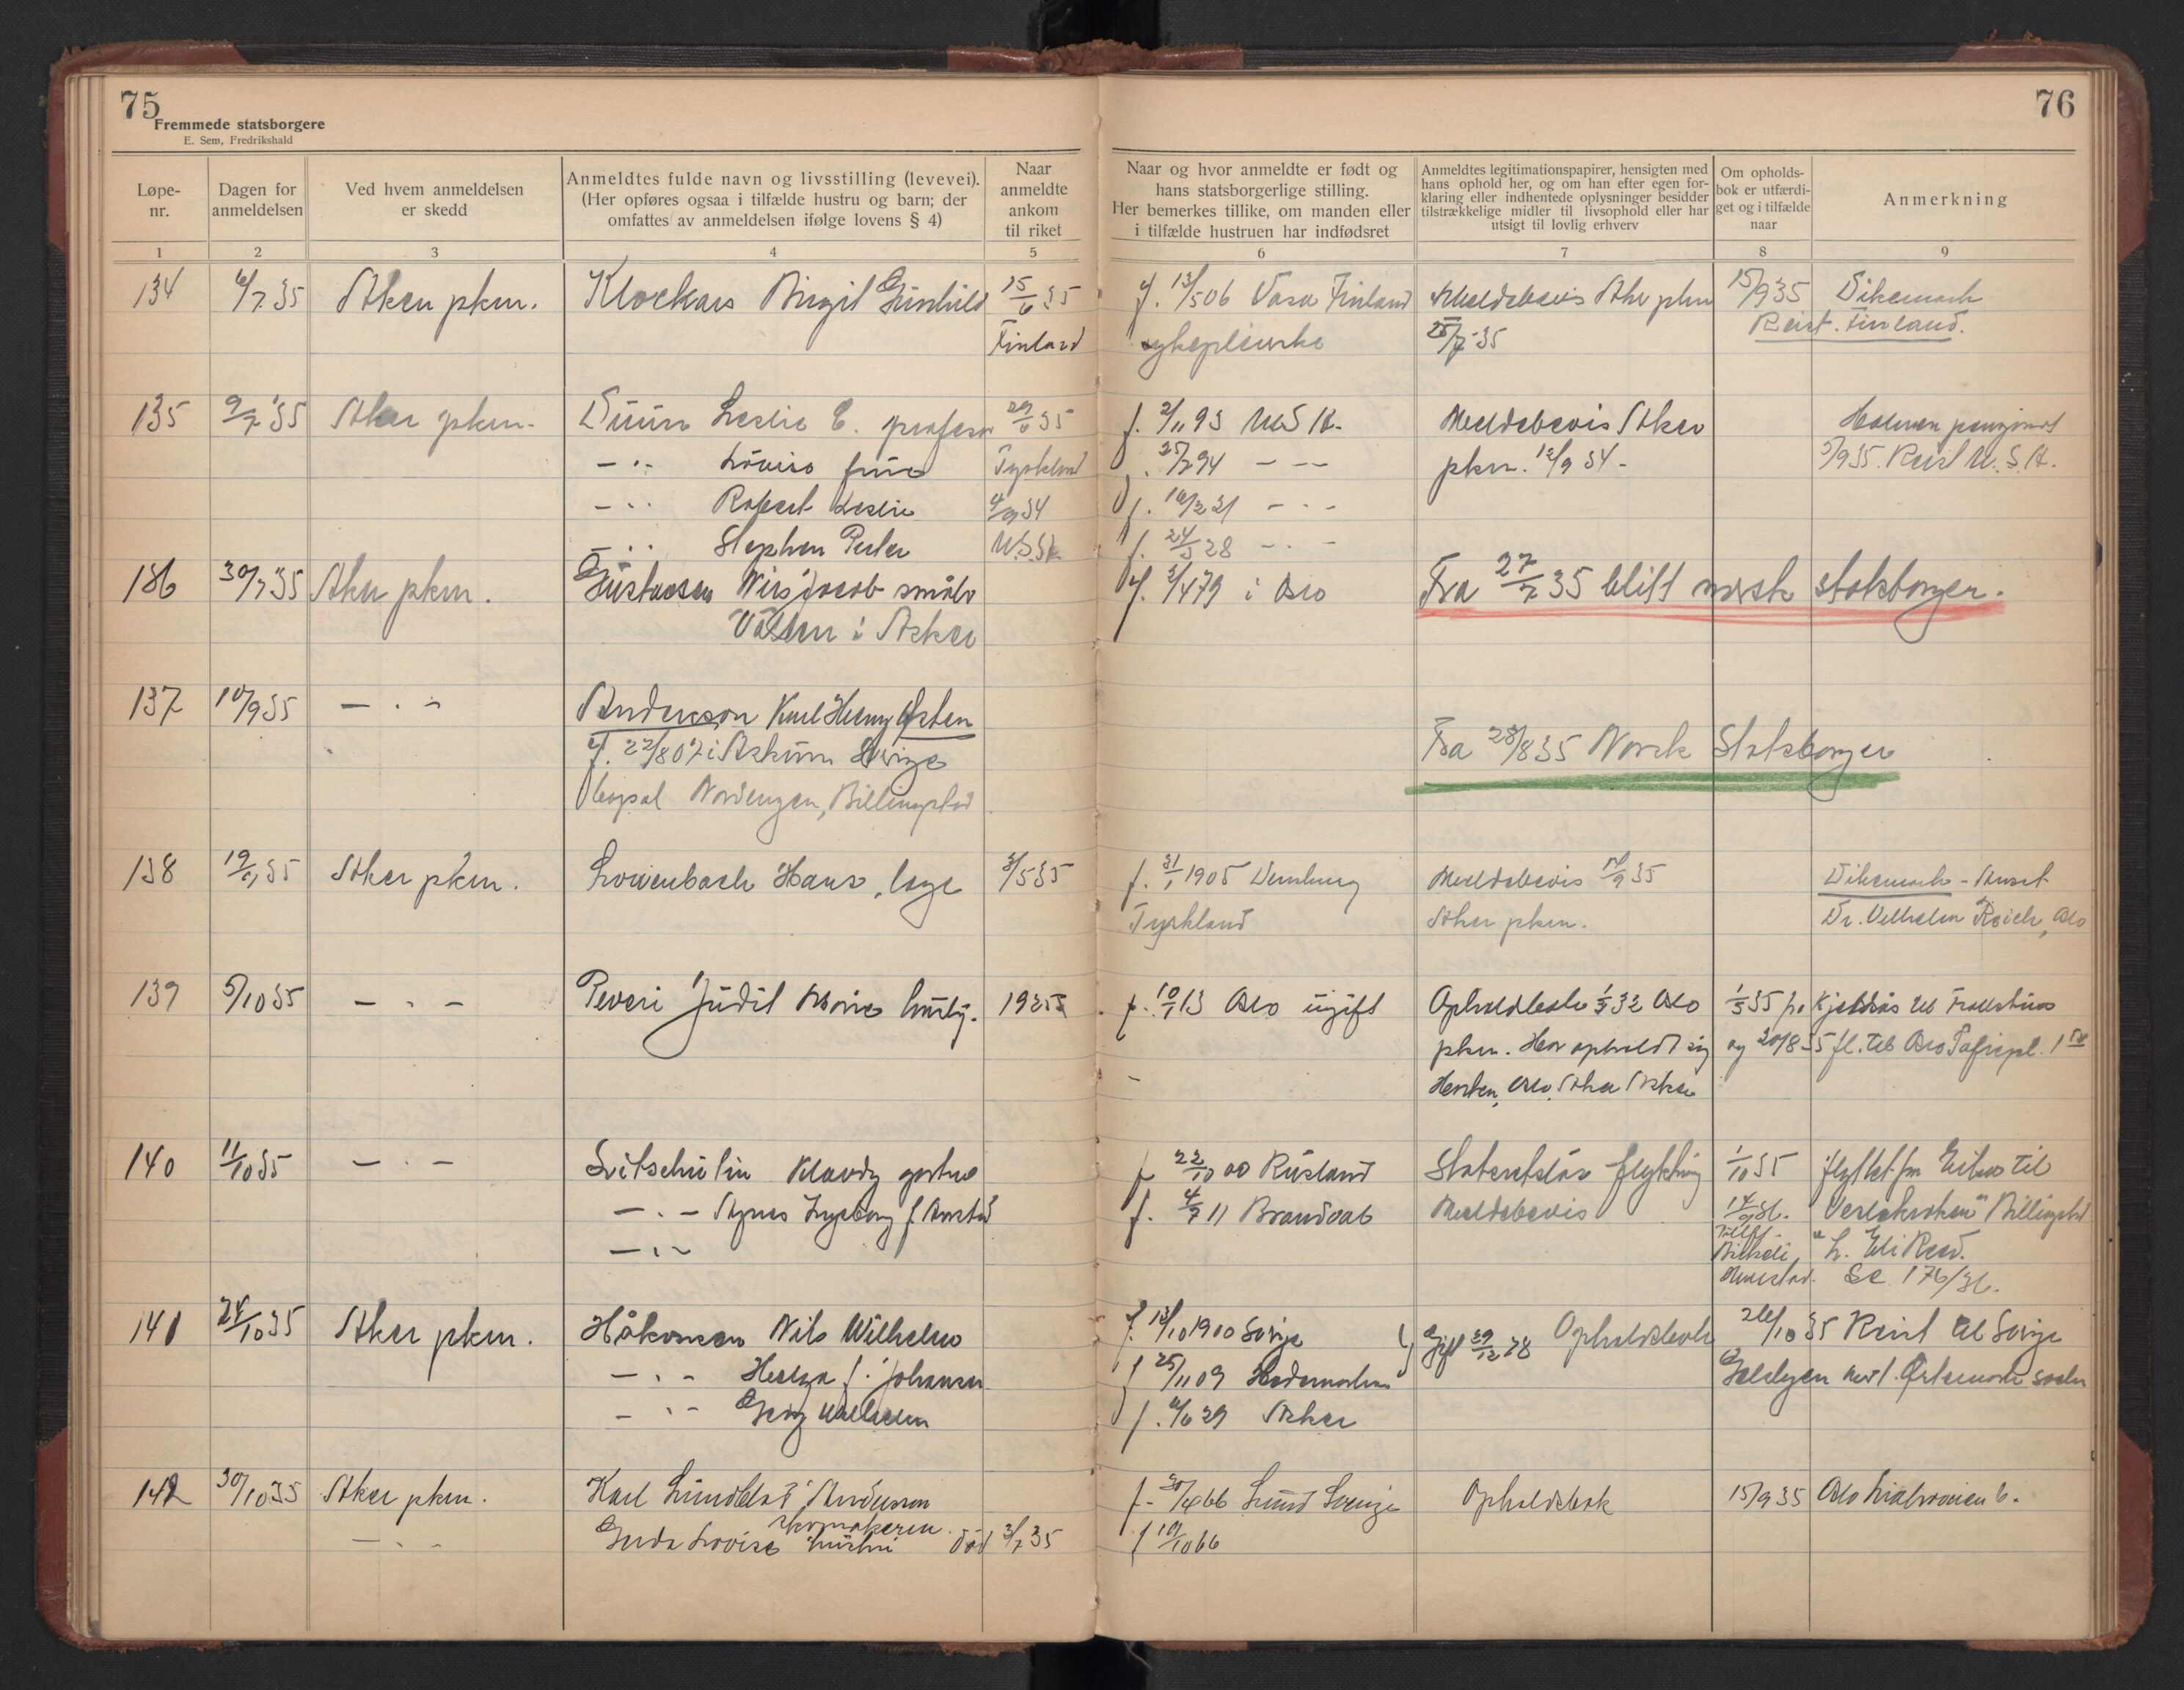 75
Fremmede statsborgere
E. Sem, Fredrikshald
76
Løpe-
nr.
Dagen for
anmeldelsen
Ved hvem anmeldelsen
er skedd
Anmeldtes fulde navn og livsstilling (levevei).
(Her opføres ogsaa i tilfælde hustru og barn; der
omfattes av anmeldelsen ifølge lovens § 4)
Naar
anmeldte
ankom
til riket
Naar og hvor anmeldte er født og
hans statsborgerlige stilling.
Her bemerkes tillike, om manden eller
i tilfælde hustruen har indfødsret
Anmeldtes legitimationspapirer, hensigten med
hans ophold her, og om han efter egen for-
klaring eller indhentede oplysninger besidder
tilstrækkelige midler til livsophold eller har
utsigt til lovlig erhverv
Om opholds-
bok er utfærdi-
get og i tilfælde
naar
Anmerkning
1 2 3 4 5 6 7 8 9
134 6/7 35 Aker pkm. Klockars Birgit Gunhild 15/6 35 f. 13/5 06 Vasa Finland Meldebevis Aker pkm 15/9 35 Dikemark
Finland sykepleierske 25/7-35 Reist. Finland.
135 9/7 35 Aker pkm. Dunn Leslie C. professor 29/6 35 f. 2/11 93 U.S.A. Meldebevis Aker
— " — Lovisa frue Tyskland f. 25/7 94 — " — pkm. 12/9 34 - 5/9 35. Reist U.S.A.
— " — Robert Leslie 4/9 34 f. 16/2 21 — " —
— " — Stephen Peter U.S.A. f. 24/5 28 — " —
136 30/7 35 Aker pkm. Gustavsen Nils Jacob f. 2/4 79 i Oslo Fra 27/7 35 blitt norsk statsborger.
i Asker
137 10/9 35 — " — Anderson Karl Helmy Østen
f. 22/8 07 i Askum Sverige Fra 28/8 35 Norsk Statsborger
bopel Nordengen, Billingstad
138 19/9 35 Aker pkm. Lowenbach Hans, lege 3/5 35 f. 31/1 1905 Meldebevis 17/9 35 Dikemark - Ansat
Tyskland Aker pkm. Dr. Vilhelm Reich, Oslo
139 5/10 35 — " — Peveri Judit Marie 1925 f. 10/1 13 Oslo ugift Opholdsbok 1/5 32 Oslo 1/5 35 fr. Kjeldås til
pkm. Har opholdt sig og 20/8 35 fl. til Oslo
Oslo, Aker Asker
140 11/10 35 — " — Svitschulin Klavdy gartner f 22/10 00 Rusland Statsløs flyktning 1/10 35 flyttet fra til
— " — Agnes Ingeborg f. f. 4/7 11 Brandval Meldebevis 14/9 36. Vesleskroken" Billingstad
— " — h. Eli Reed.
Se 176/36.
141 24/10 35 Aker pkm. Håkonsen Nils Wilhelm f. 13/10 1900 Sverige Gift 29/12 28 Opholdsbok 26/10 35 Reist til Sverige
— " — Helga f. Johansen f 25/11 09 Hedemarken Østemark sokn
— " — Georg Wilhelm f. 4/6 29 Asker
142 30/10 35 Aker pkm. Karl Lundblad Andersson f. 30/4 66 Lund Sverige Opholdsbok 15/9 35 Oslo
— " — skomaker
Gerda Lovise hustru død 3/7 35 f 19/10 66